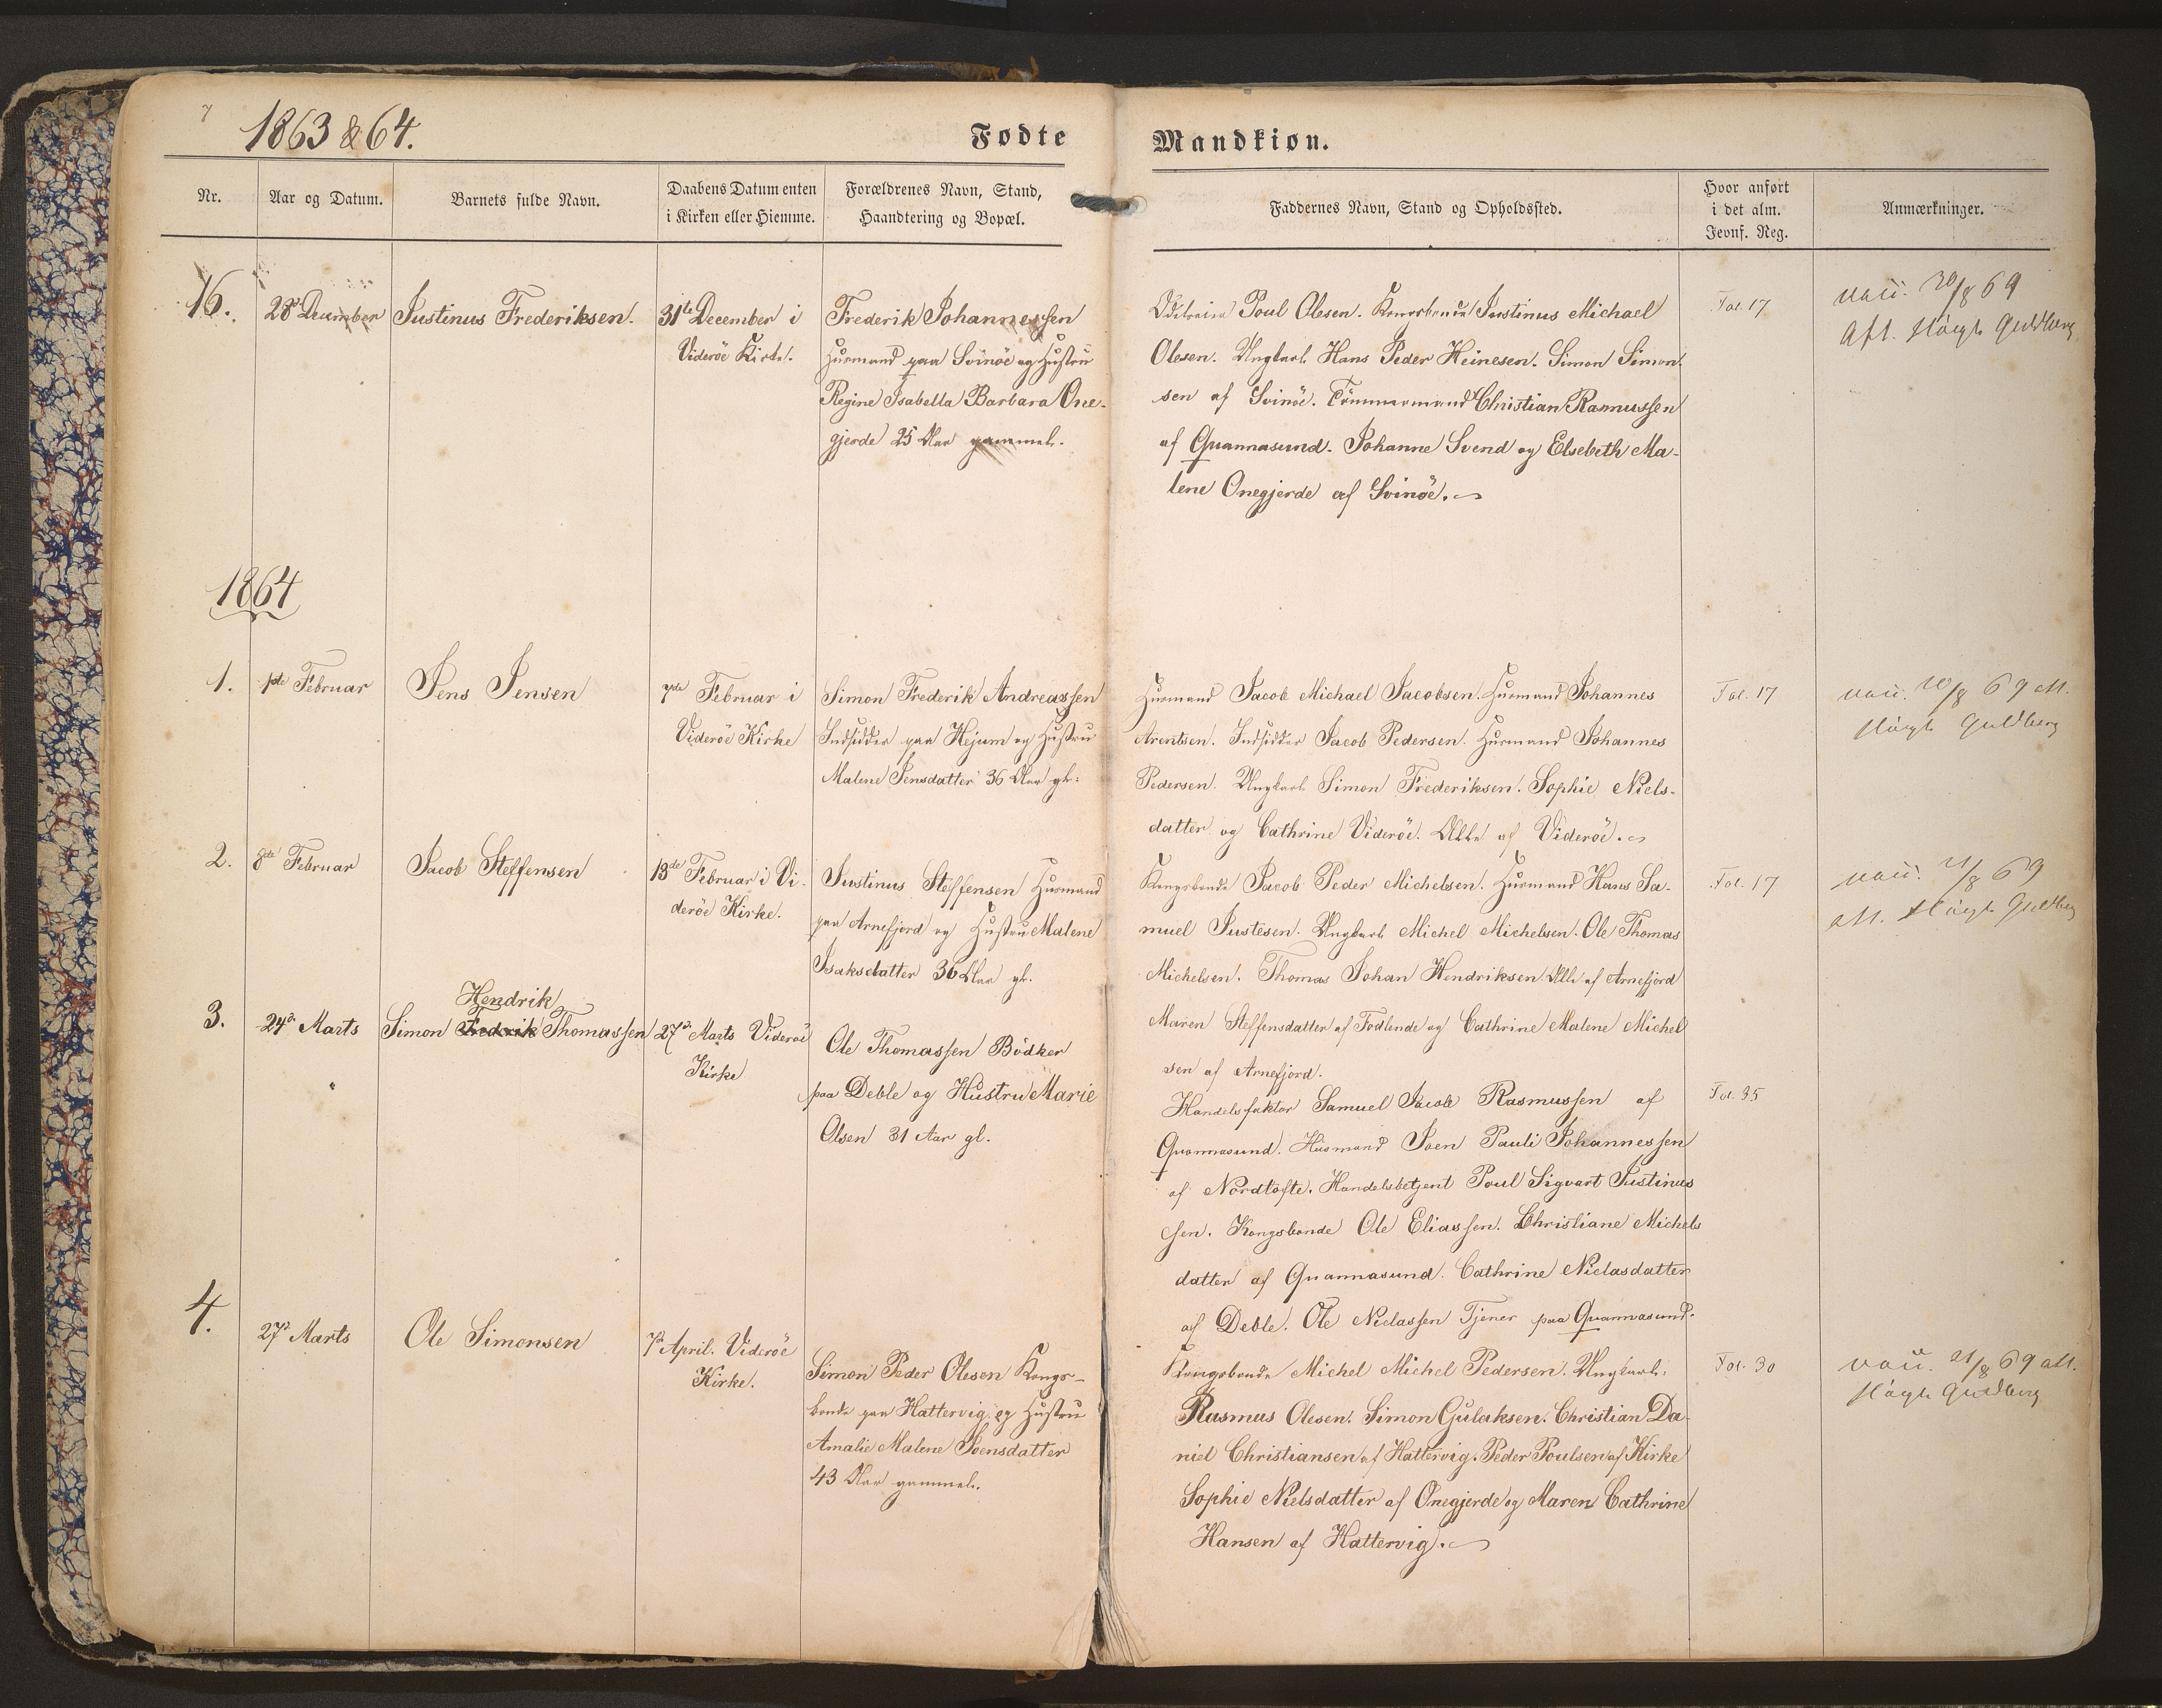 7
1863 & 64.
Fødte
Mandkiøn.
Nr.
Aar og Datum.
Barnets fulde Navn.
Daabens Datum enten
i Kirken eller Hiemme.
Forældrenes Navn, Stand,
Haandtering og Bopæl.
Faddernes Navn, Stand og Opholdssted.
Hvor anført
i det alm.
Jevnf. Reg.
Anmærkninger.
16.
28de December
Justinus Frederiksen.
31te December i
Viderøe Kirke.
Frederik Johannessen
Huusmand paa Svinöe og Hustru
Regine Isabella Barbara One-
gjerde 25 Aar gammel.
Poul Olesen. Kongsbonde Justinus Michael
Olesen. Ungkarl Hans Peder Heinesen. Simon Simon-
sen af Svinöe. Tömmermand Christian Rasmussen
af Quannasund. Johanne Svend og Elsebeth Ma-
lene Onegjerde af Svinöe.
Fol. 17
vacc. 20/8 69
Aft. Guldberg
1864
1.
1ste Februar
Jens Jensen
7de Februar i
Viderøe Kirke
Simon Frederik Andreassen
Indsidder paa Hejum og Hustru
Malene Jensdatter 36 Aar gl.
Huusmand Jacob Michael Jacobsen. Huusmand Johannes
Arentsen. Indsidder Jacob Pedersen. Huusmand Johannes
Pedersen. Ungkarl Simon Frederiksen. Sophie Niels-
datter og Cathrine Viderøe. Alle af Viderøe.
Fol. 17
vacc. 20/8 69 att.
Guldberg
2.
8de Februar
Jacob Steffensen
13de Februar i Vi-
derøe Kirke.
Justinus Steffensen Huusmand
paa Arnefjord og Hustru Malene
Isaksdatter 36 Aar gl.
Kongsbonde Jacob Peder Michelsen. Huusmand Hans Sa-
muel Justesen. Ungkarl Michel Michelsen. Ole Thomas
Michelsen. Thomas Johan Hendriksen Alle af Arnefjord
Maren Steffensdatter af Fodlende og Cathrine Malene Michel
sen af Arnefjord.
Fol. 17
vacc. 21/8 69
att. Guldberg
3.
24de Marts
Hendrik
Simon Fredrik Thomassen
27de Marts Viderøe
Kirke
Ole Thomassen Bödker
paa Deble og Hustru Marie
Olsen 31 Aar gl.
Handelsfaktor Samuel Jacob Rasmussen af
Quannasund. Husmand Joen Pauli Johannessen
af Nordtofte. Handelsbetjent Poul Sigvart Justinus
sen. Kongsbonde Ole Eliassen. Christiane Michels
datter af Quannasund. Cathrine Niclasdatter
af Deble. Ole Niclassen Tjener paa Quannasund.
Fol. 35
4.
27de Marts
Ole Simonsen
7de April. Viderøe
Kirke.
Simon Peder Olesen Kongs-
bonde paa Hattervig og Hustru
Amalie Malene Joensdatter
43 Aar gammel.
Kongsbonde Michel Michel Pedersen. Ungkarl.
Rasmus Olesen. Simon Gulaksen. Christian Da-
niel Christiansen af Hattervig. Peder Poulsen af Kirke
Sophie Nielsdatter af Onegjerde og Maren Cathrine
Hansen af Hattervig.
Fol. 30
vacc. 21/8 69 att.
Guldberg